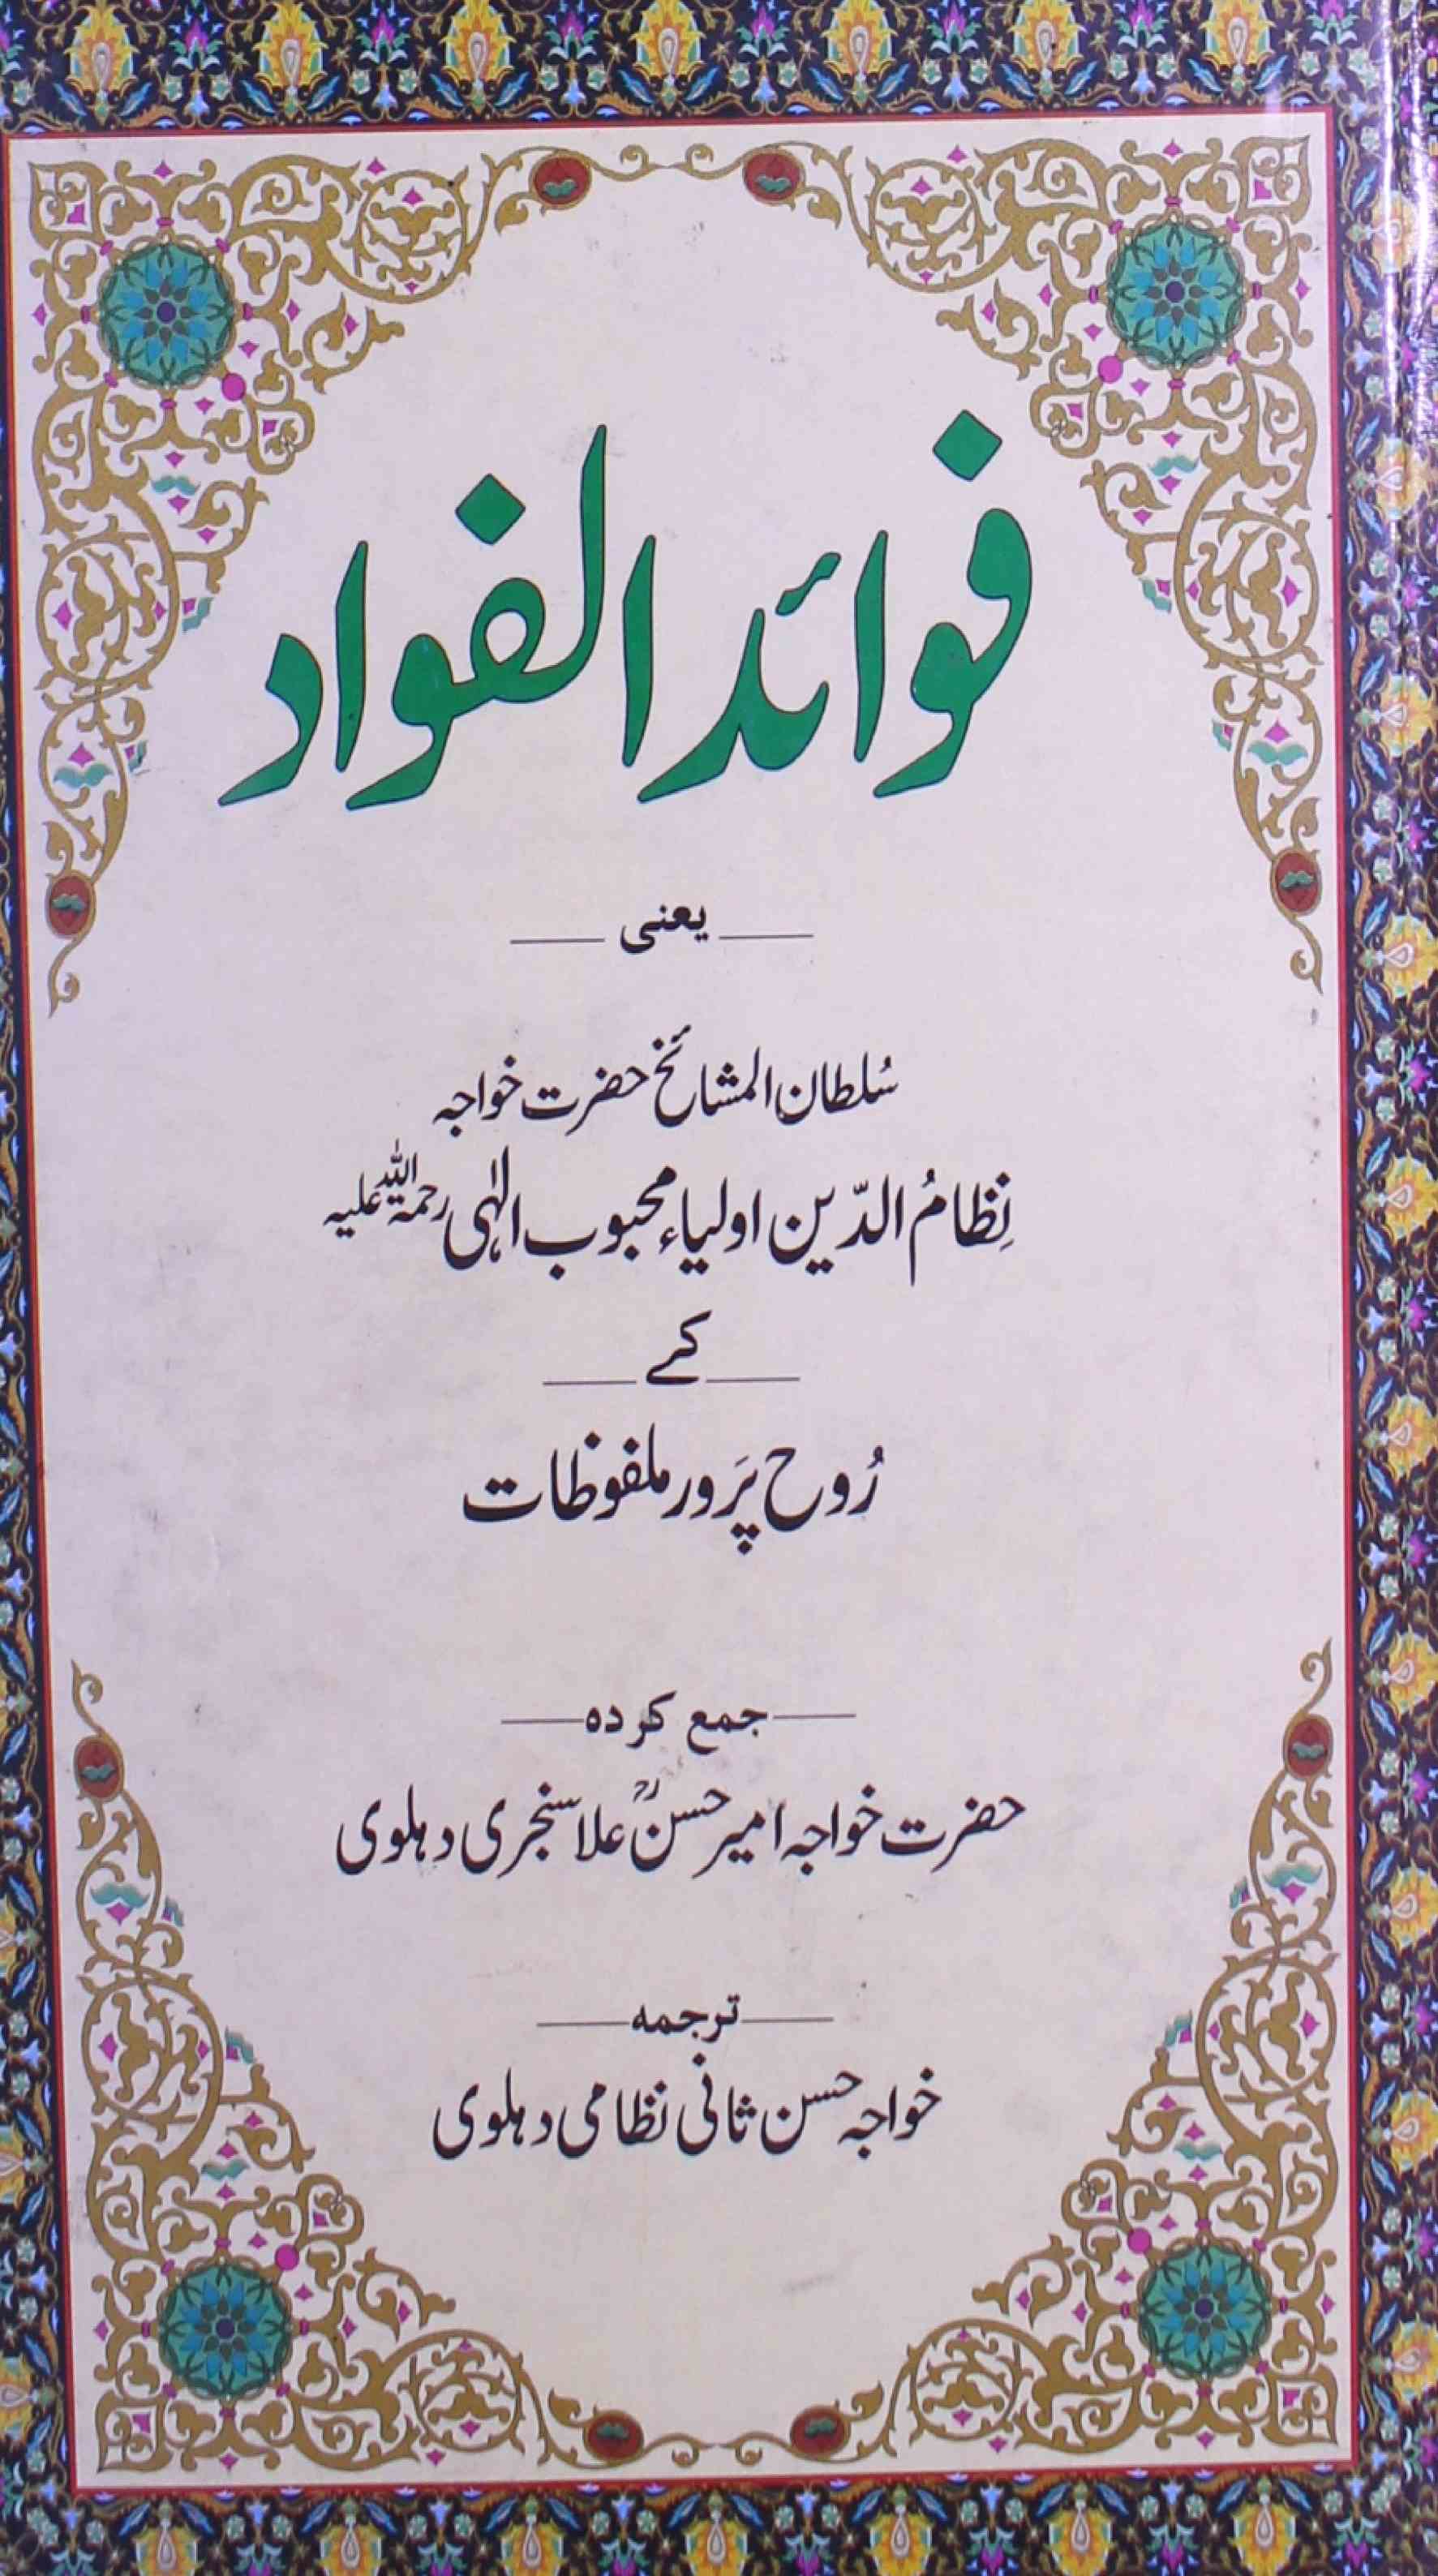 فوائد الفواد
یعنی
سُلطان المشائخ حضرت خواجہ
نِظامُ الدّین اولیاء محبوب الٰہی رحمۃ اللہ علیہ
کے
رُوح پَرور ملفوظات
جمع کردہ
حضرت خواجہ امیر حسنؒ علا سنجری دہلوی
ترجمہ
خواجہ حسن ثانی نظامی دہلوی